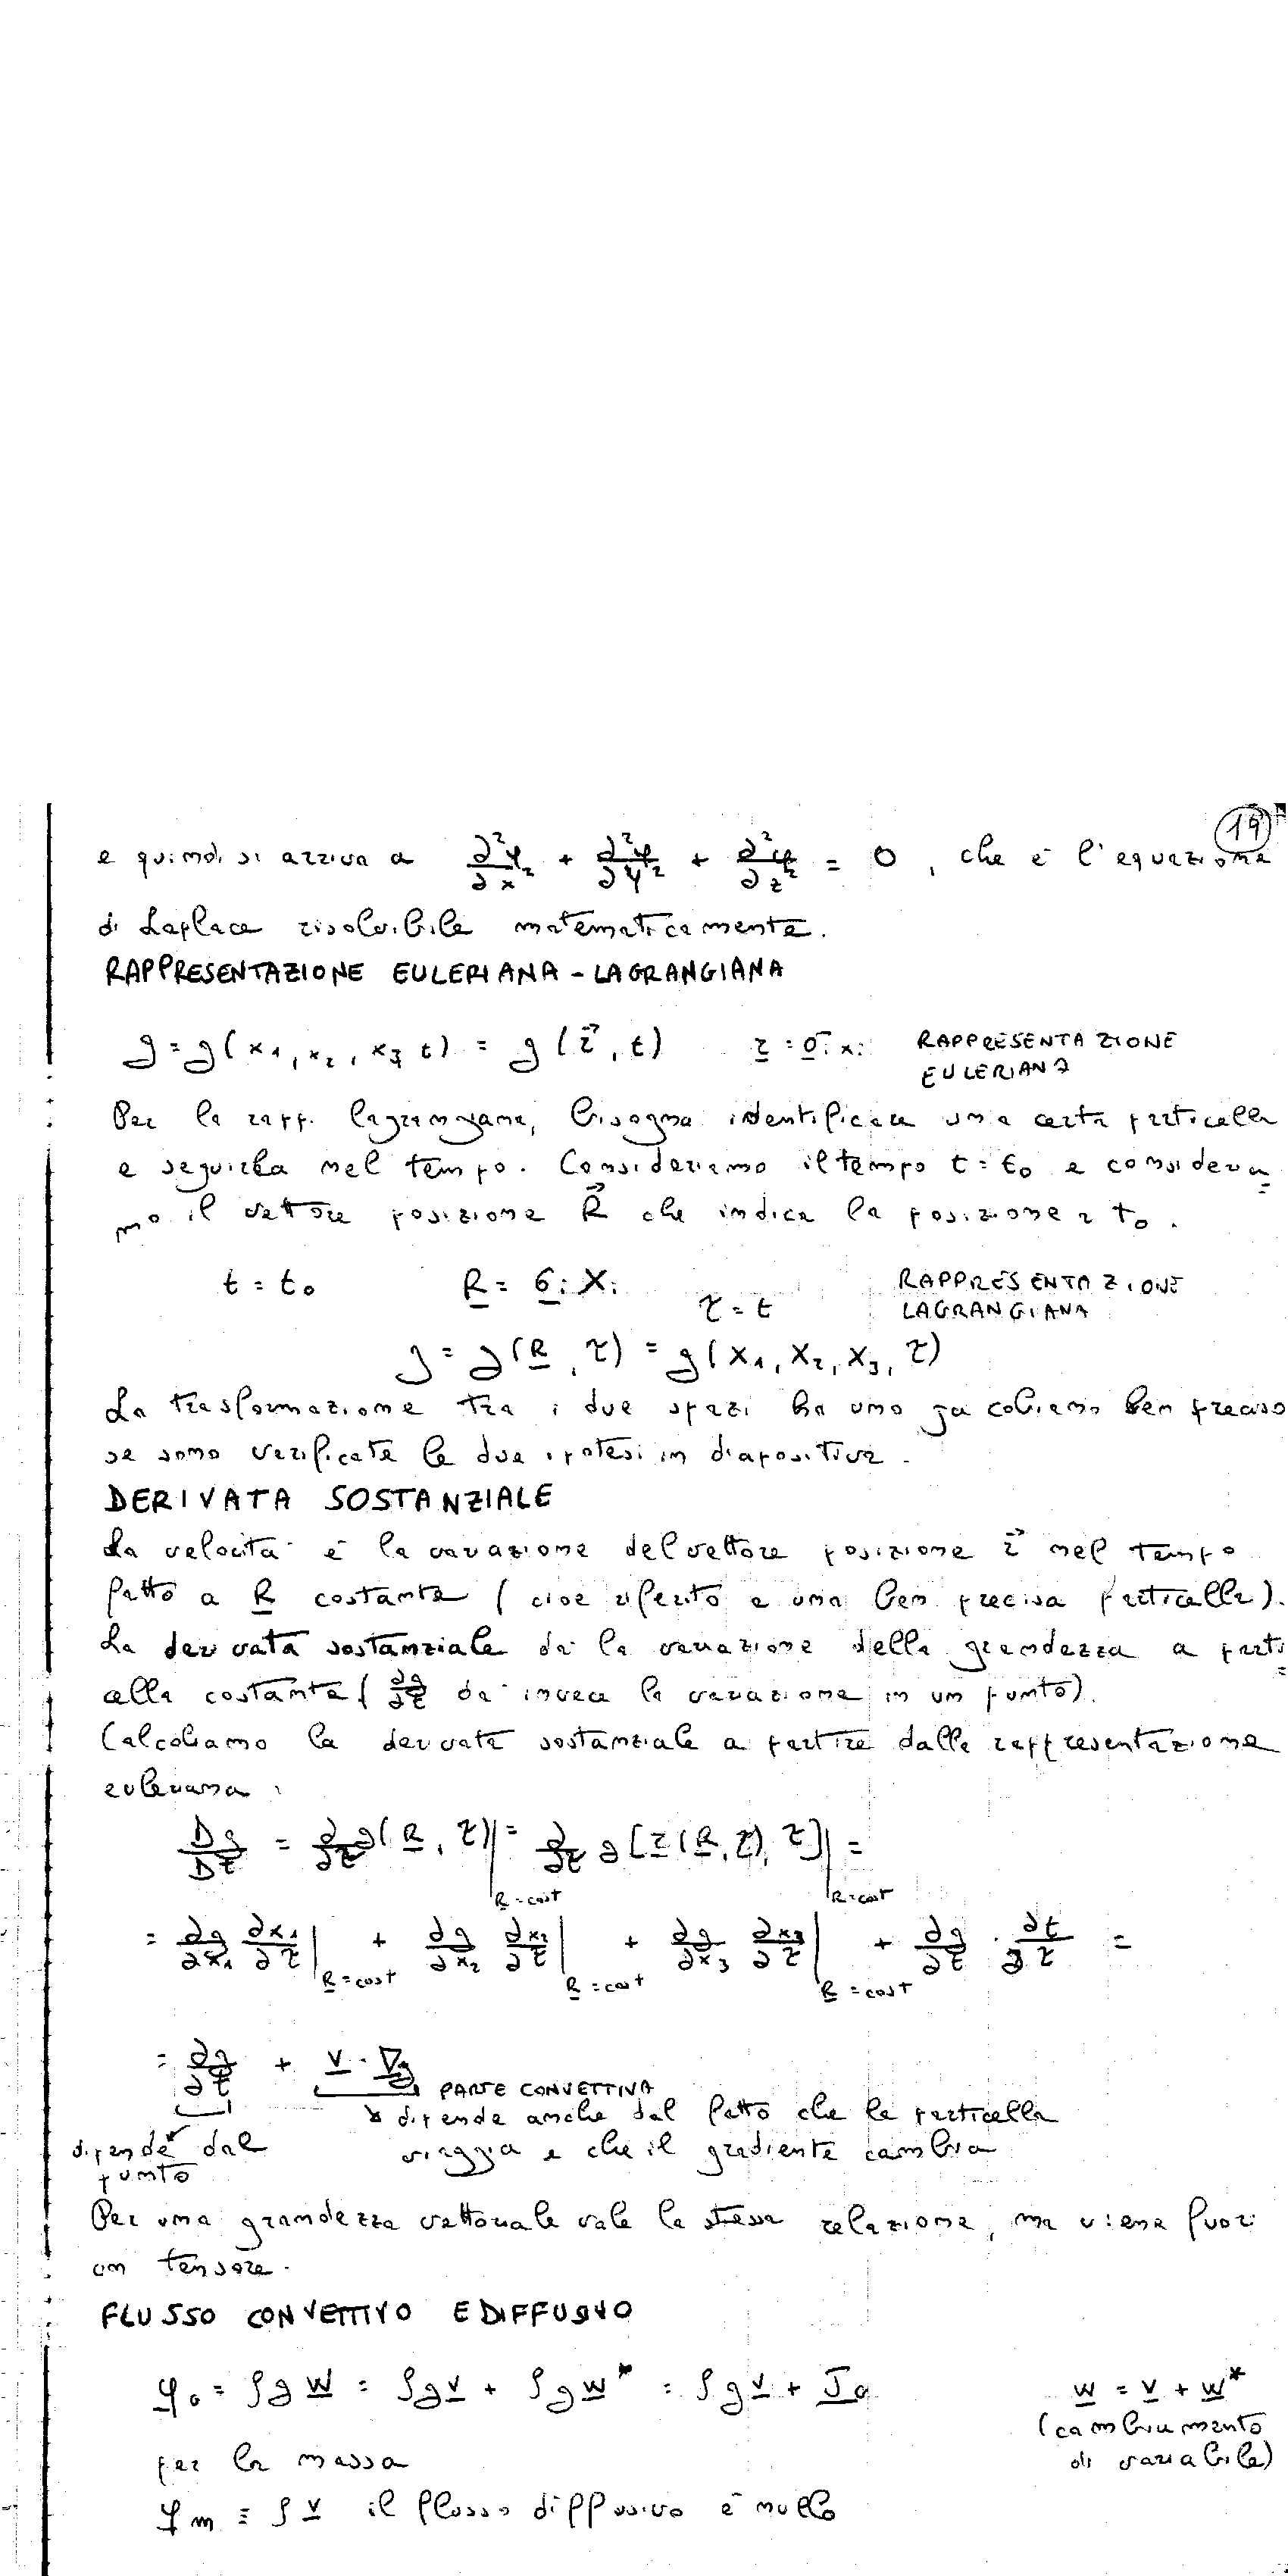 19
e quindi si arriva a ∂²φ/∂x² + ∂²φ/∂y² + ∂²φ/∂z² = 0, che è l'equazione
di Laplace risolvibile matematicamente.
RAPPRESENTAZIONE EULERIANA - LAGRANGIANA
g = g(x₁, x₂, x₃ t) = g(r⃗, t) r = σᵢ xᵢ RAPPRESENTAZIONE
EULERIANA
Per la rapp. lagrangiana, bisogna identificare una certa particella
e seguirla nel tempo. Consideriamo il tempo t = t₀ e consideria
mo il vettore posizione R⃗ che indica la posizione a t₀.
t = t₀ R = σᵢ Xᵢ τ = t RAPPRESENTAZIONE
LAGRANGIANA
g = g(R, τ) = g(X₁, X₂, X₃, τ)
La trasformazione tra i due spazi ha uno jacobiano ben preciso
se sono verificate le due ipotesi in diapositiva.
DERIVATA SOSTANZIALE
La velocità è la variazione del vettore posizione r⃗ nel tempo
fatto a R costante (cioè riferito a una ben precisa particella).
La derivata sostanziale dà la variazione della grandezza a parti
cella costante (∂g/∂t dà invece la variazione in un punto).
Calcoliamo la derivata sostanziale a partire dalla rappresentazione
euleriana:
Dg/Dt = ∂/∂τ g(R, τ)|R=cost = ∂/∂τ g[r(R, τ), τ]|R=cost =
= ∂g/∂x₁ ∂x₁/∂τ|R=cost + ∂g/∂x₂ ∂x₂/∂τ|R=cost + ∂g/∂x₃ ∂x₃/∂τ|R=cost + ∂g/∂t · ∂t/∂τ =
= ∂g/∂t + v · ∇g
PARTE CONVETTIVA
dipende anche dal fatto che la particella
dipende dal viaggia e che il gradiente cambia
punto
Per una grandezza vettoriale vale la stessa relazione, ma viene fuori
un tensore.
FLUSSO CONVETTIVO E DIFFUSIVO
φG = ρg w = ρg v + ρg w* = ρg v + JG w = v + w*
(cambiamento
di variabile)
per la massa
φm = ρ v il flusso diffusivo è nullo